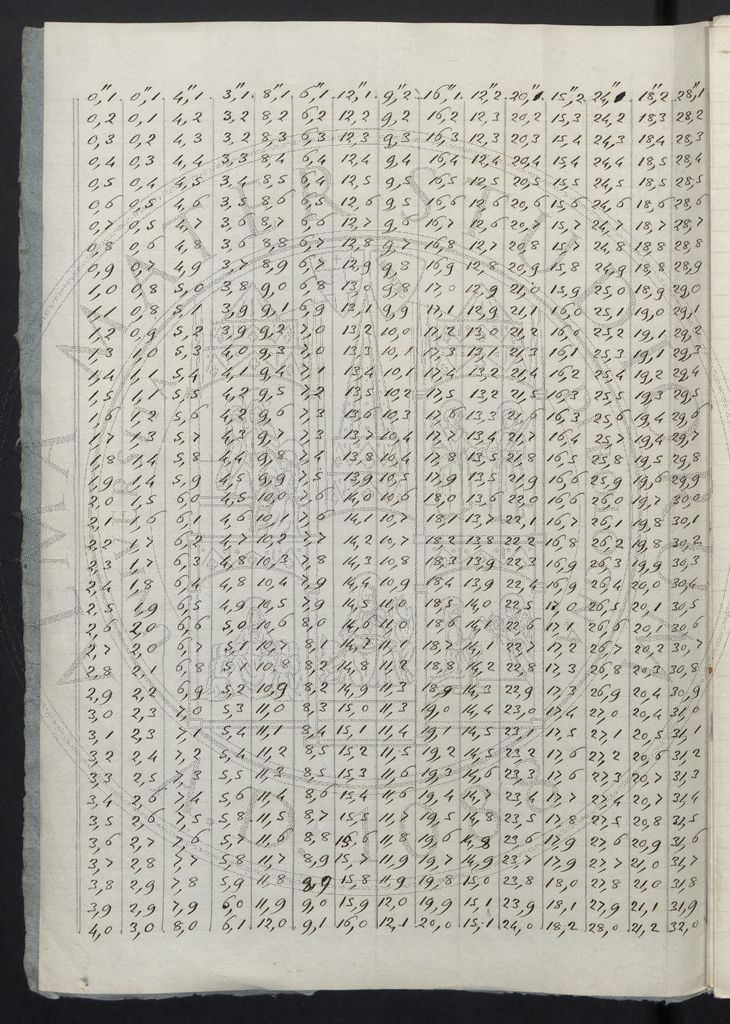 0,"1 0,"1 4,"1 3,"1 8,"1 6,"1 12,"1 9,"2 16,"1 12,"2 20,"1 15,"2 24,"1 18,"2 28,"1
0,2 0,1 4,2 3,2 8,2 6,2 12,2 9,2 16,2 12,3 20,2 15,3 24,2 18,3 28,2
0,3 0,2 4,3 3,2 8,3 6,3 12,3 9,3 16,3 12,3 20,3 15,4 24,3 18,4 28,3
0,4 0,3 4,4 3,3 8,4 6,4 12,4 9,4 16,4 12,4 20,4 15,4 24,4 18,5 28,4
0,5 0,4 4,5 3,4 8,5 6,4 12,5 9,5 16,5 12,5 20,5 15,5 24,5 18,5 28,5
0,6 0,5 4,6 3,5 8,6 6,5 12,6 9,5 16,6 12,6 20,6 15,6 24,6 18,6 28,6
0,7 0,5 4,7 3,6 8,7 6,6 12,7 9,6 16,7 12,6 20,7 15,7 24,7 18,7 28,7
0,8 0,6 4,8 3,6 8,8 6,7 12,8 9,7 16,8 12,7 20,8 15,7 24,8 18,8 28,8
0,9 0,7 4,9 3,7 8,9 6,7 12,9 9,8 16,9 12,8 20,9 15,8 24,9 18,8 28,9
1,0 0,8 5,0 3,8 9,0 6,8 13,0 9,8 17,0 12,9 21,0 15,9 25,0 18,9 29,0
1,1 0,8 5,1 3,9 9,1 6,9 13,1 9,9 17,1 12,9 21,1 16,0 25,1 19,0 29,1
1,2 0,9 5,2 3,9 9,2 7,0 13,2 10,0 17,2 13,0 21,2 16,0 25,2 19,1 29,2
1,3 1,0 5,3 4,0 9,3 7,0 13,3 10,1 17,3 13,1 21,3 16,1 25,3 19,1 29,3
1,4 1,1 5,4 4,1 9,4 7,1 13,4 10,1 17,4 13,2 21,4 16,2 25,4 19,2 29,4
1,5 1,1 5,5 4,2 9,5 7,2 13,5 10,2 17,5 13,2 21,5 16,3 25,5 19,3 29,5
1,6 1,2 5,6 4,2 9,6 7,3 13,6 10,3 17,6 13,3 21,6 16,3 25,6 19,4 29,6
1,7 1,3 5,7 4,3 9,7 7,3 13,7 10,4 17,7 13,4 21,7 16,4 25,7 19,4 29,7
1,8 1,4 5,8 4,4 9,8 7,4 13,8 10,4 17,8 13,5 21,8 16,5 25,8 19,5 29,8
1,9 1,4 5,9 4,5 9,9 7,5 13,9 10,5 17,9 13,5 21,9 16,6 25,9 19,6 29,9
2,0 1,5 6,0 4,5 10,0 7,6 14,0 10,6 18,0 13,6 22,0 16,6 26,0 19,7 30,0
2,1 1,6 6,1 4,6 10,1 7,6 14,1 10,7 18,1 13,7 22,1 16,7 26,1 19,8 30,1
2,2 1,7 6,2 4,7 10,2 7,7 14,2 10,7 18,2 13,8 22,2 16,8 26,2 19,8 30,2
2,3 1,7 6,3 4,8 10,3 7,8 14,3 10,8 18,3 13,9 22,3 16,9 26,3 19,9 30,3
2,4 1,8 6,4 4,8 10,4 7,9 14,4 10,9 18,4 13,9 22,4 16,9 26,4 20,0 30,4
2,5 1,9 6,5 4,9 10,5 7,9 14,5 11,0 18,5 14,0 22,5 17,0 26,5 20,1 30,5
2,6 2,0 6,6 5,0 10,6 8,0 14,6 11,0 18,6 14,1 22,6 17,1 26,6 20,1 30,6
2,7 2,0 6,7 5,1 10,7 8,1 14,7 11,1 18,7 14,1 22,7 17,2 26,7 20,2 30,7
2,8 2,1 6,8 5,1 10,8 8,2 14,8 11,2 18,8 14,2 22,8 17,3 26,8 20,3 30,8
2,9 2,2 6,9 5,2 10,9 8,2 14,9 11,3 18,9 14,3 22,9 17,3 26,9 20,4 30,9
3,0 2,3 7,0 5,3 11,0 8,3 15,0 11,3 19,0 14,4 23,0 17,4 27,0 20,4 31,0
3,1 2,3 7,1 5,4 11,1 8,4 15,1 11,4 19,1 14,5 23,1 17,5 27,1 20,5 31,1
3,2 2,4 7,2 5,4 11,2 8,5 15,2 11,5 19,2 14,5 23,2 17,6 27,2 20,6 31,2
3,3 2,5 7,3 5,5 11,3 8,5 15,3 11,6 19,3 14,6 23,3 17,6 27,3 20,7 31,3
3,4 2,6 7,4 5,6 11,4 8,6 15,4 11,6 19,4 14,7 23,4 17,7 27,4 20,7 31,4
3,5 2,6 7,5 5,8 11,5 8,7 15,5 11,7 19,5 14,8 23,5 17,8 27,5 20,8 31,5
3,6 2,7 7,6 5,7 11,6 8,8 15,6 11,8 19,6 14,8 23,6 17,9 27,6 20,9 31,6
3,7 2,8 7,7 5,8 11,7 8,9 15,7 11,9 19,7 14,9 23,7 17,9 27,7 21,0 31,7
3,8 2,9 7,8 5,9 11,8 8,9 15,8 11,9 19,8 15,0 23,8 18,0 27,8 21,0 31,8
3,9 2,9 7,9 6,0 11,9 9,0 15,9 12,0 19,9 15,1 23,9 18,1 27,9 21,1 31,9
4,0 3,0 8,0 6,1 12,0 9,1 16,0 12,1 20,0 15,1 24,0 18,2 28,0 21,2 32,0